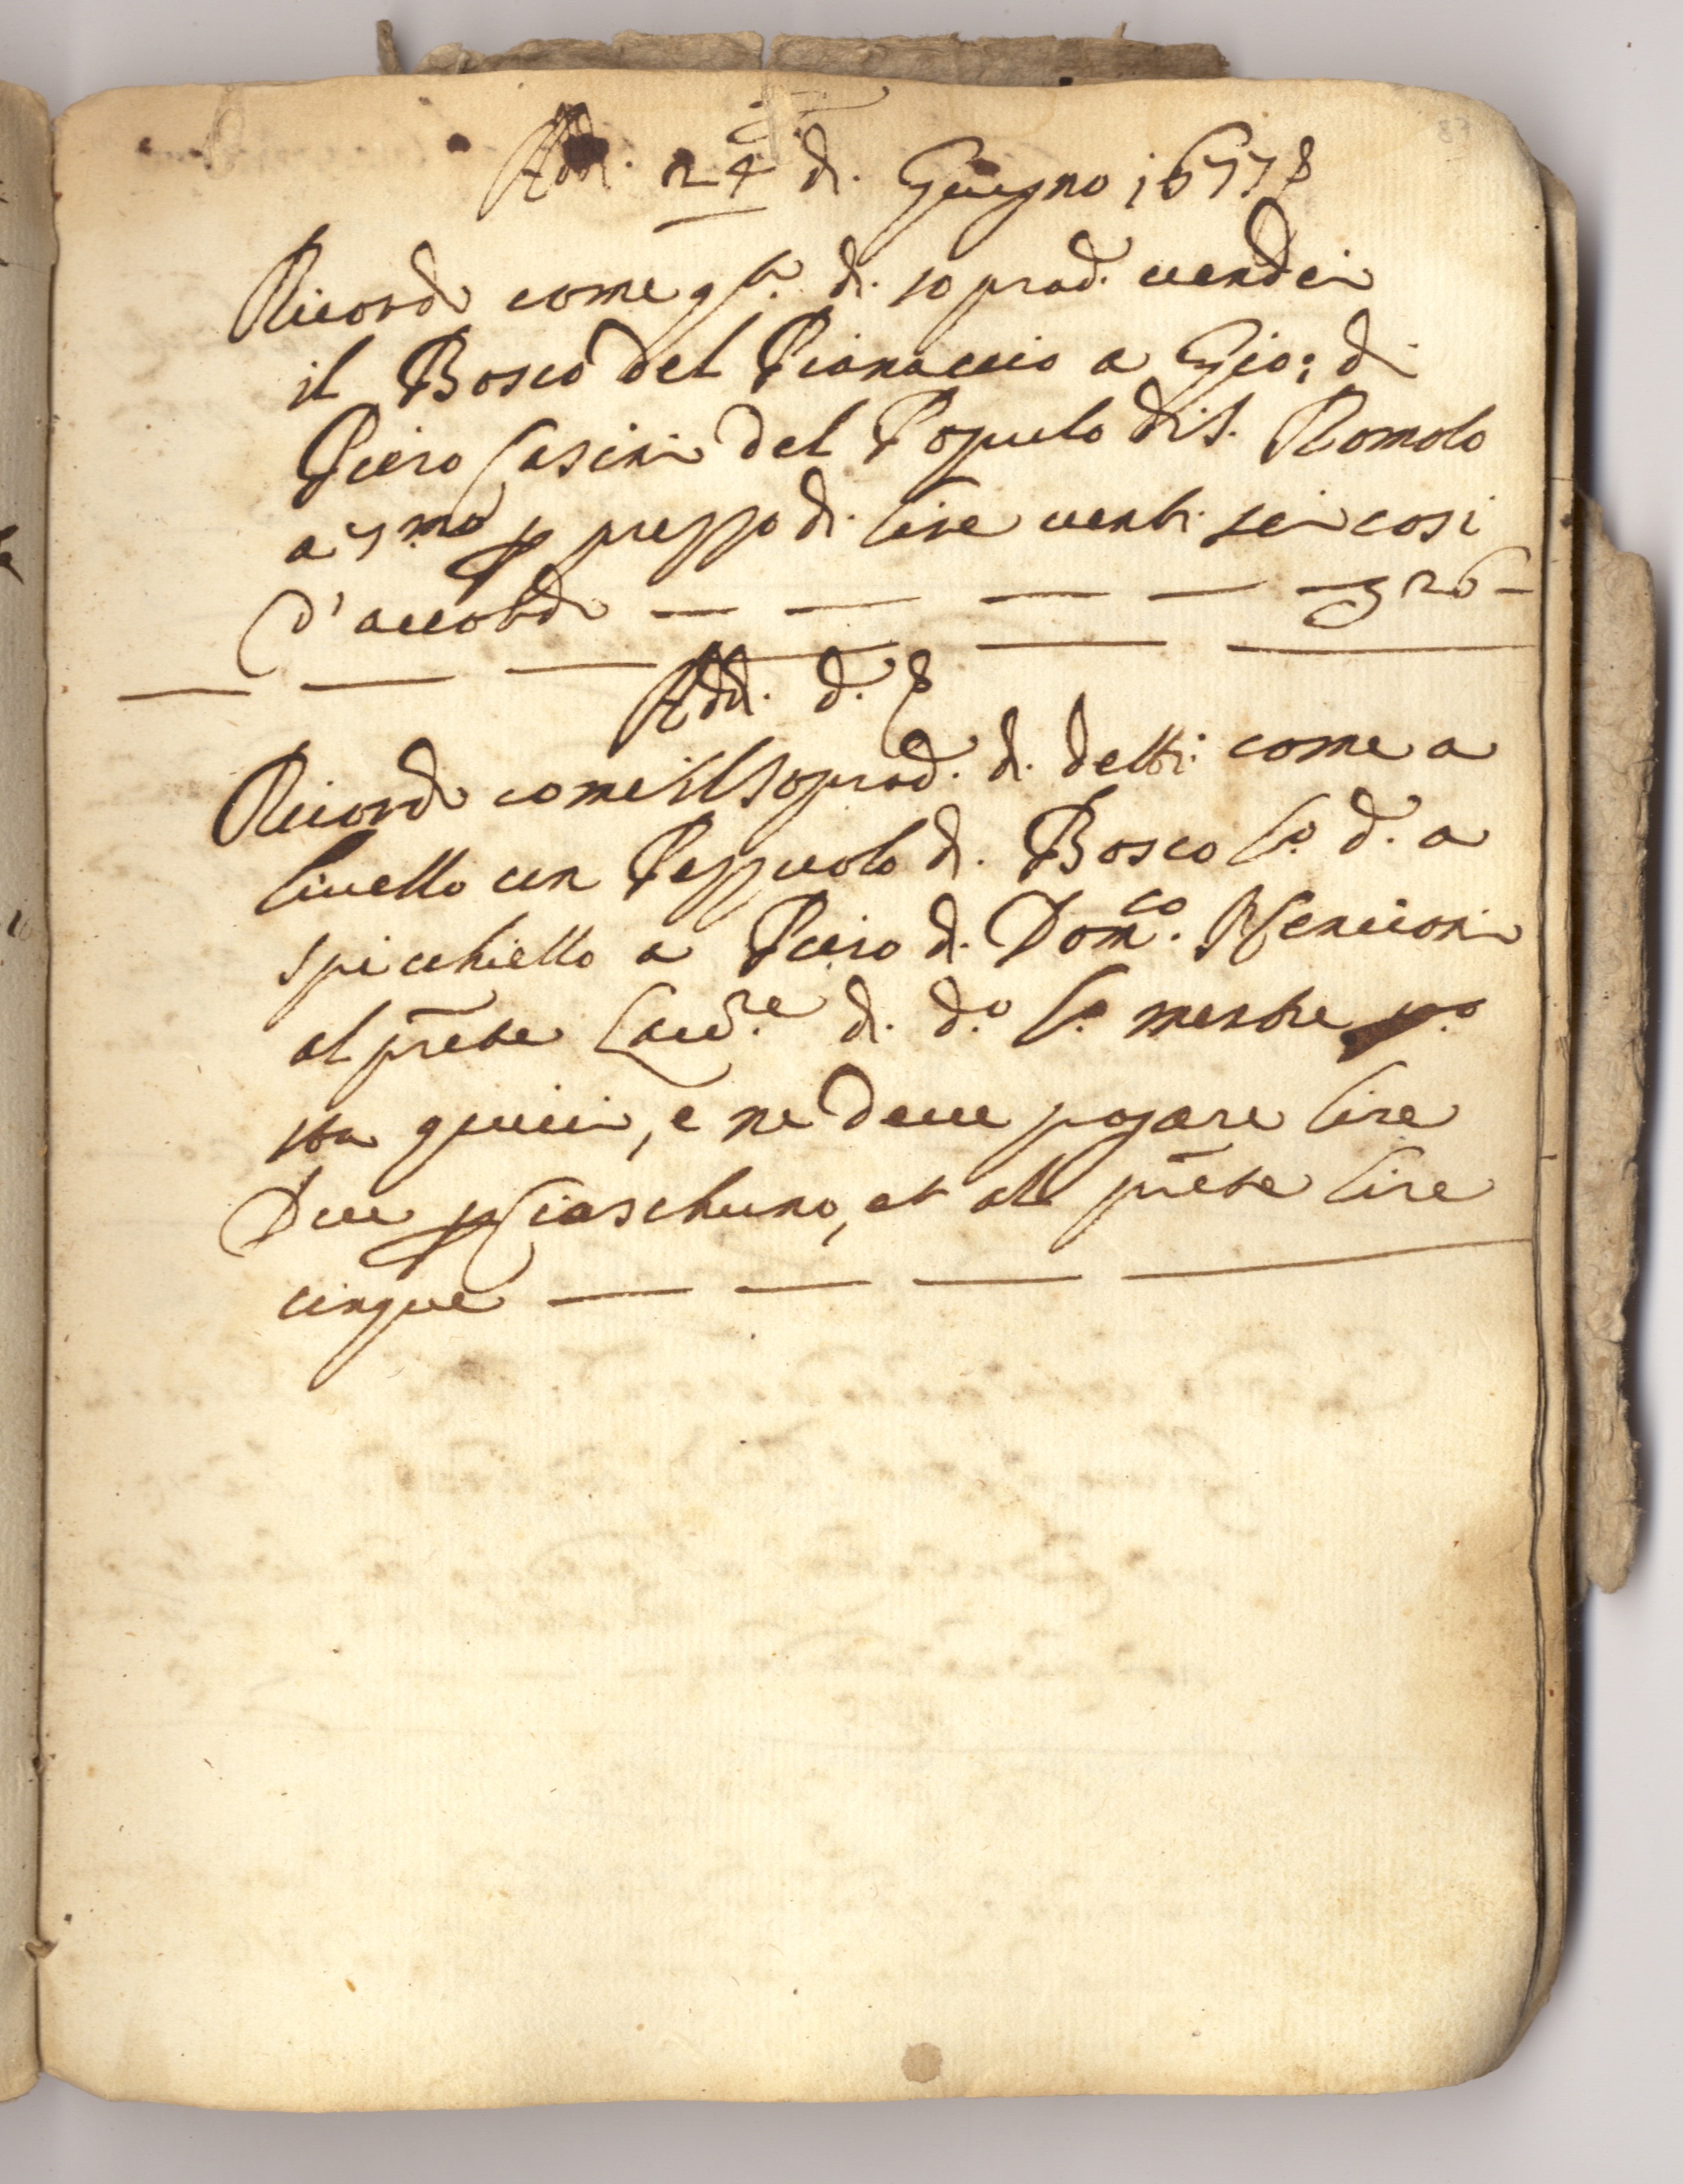 Add. 24 di Giugno 1677
Ricordo come q.to di soprad. vendei
il Bosco del Pianaccio a Gio: di
Piero Casini del Popolo di S. Romolo
a p prezzo di lire venti sei cosi
d'accordo — — — — — 26 —
Add. d.
Ricordo come il soprad. di detti come a
livello un Pezzuolo di Bosco l.o d. a
spicchiello a Piero di Dom.co Nencioni
al prēte Lau.re di d.o l.o mentre
sta quivi, e ne deve pagare lire
Due p Ciaschuno, et al prēte lire
cinque — — — —